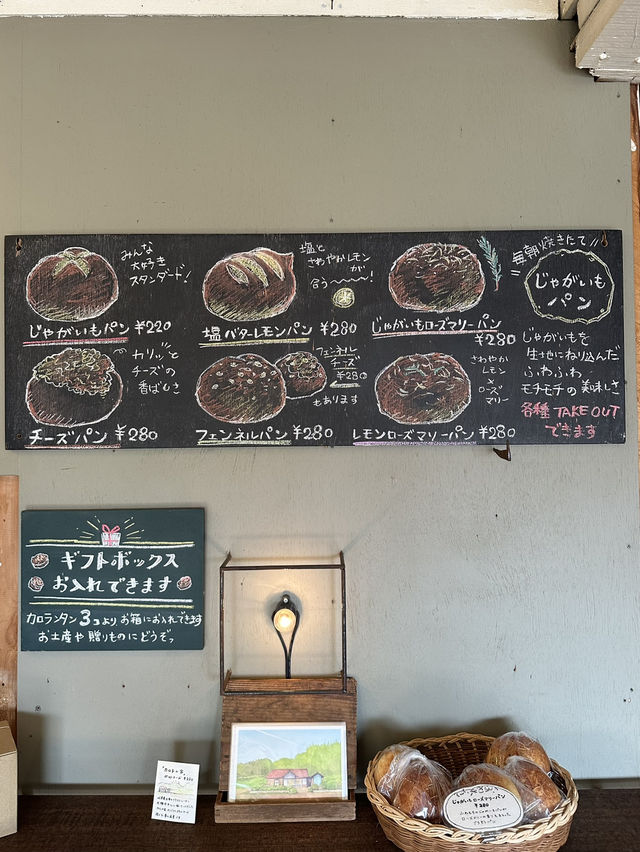 みんな
大好き
スタンダード!
じゃがいもパン ¥220
塩と
さわやかレモン
が
合う〜!
塩バターレモンパン ¥280
じゃがいもローズマリーパン
¥280
毎朝焼きたて
じゃがいも
パン
カリッと
チーズの
香ばしさ
チーズパン ¥280
フェンネル
チーズ
¥280
もあります
フェンネルパン ¥280
さわやか
レモン
と
ローズ
マリー
レモンローズマリーパン ¥280
じゃがいもを
生地にねり込んだ
ふわふわ
モチモチの美味しさ
各種 TAKE OUT
できます
ギフトボックス
お入れできます
カロランタン 3コより お箱にお入れできます
お土産や贈りものにどうぞっ
じゃがいもローズマリーパン